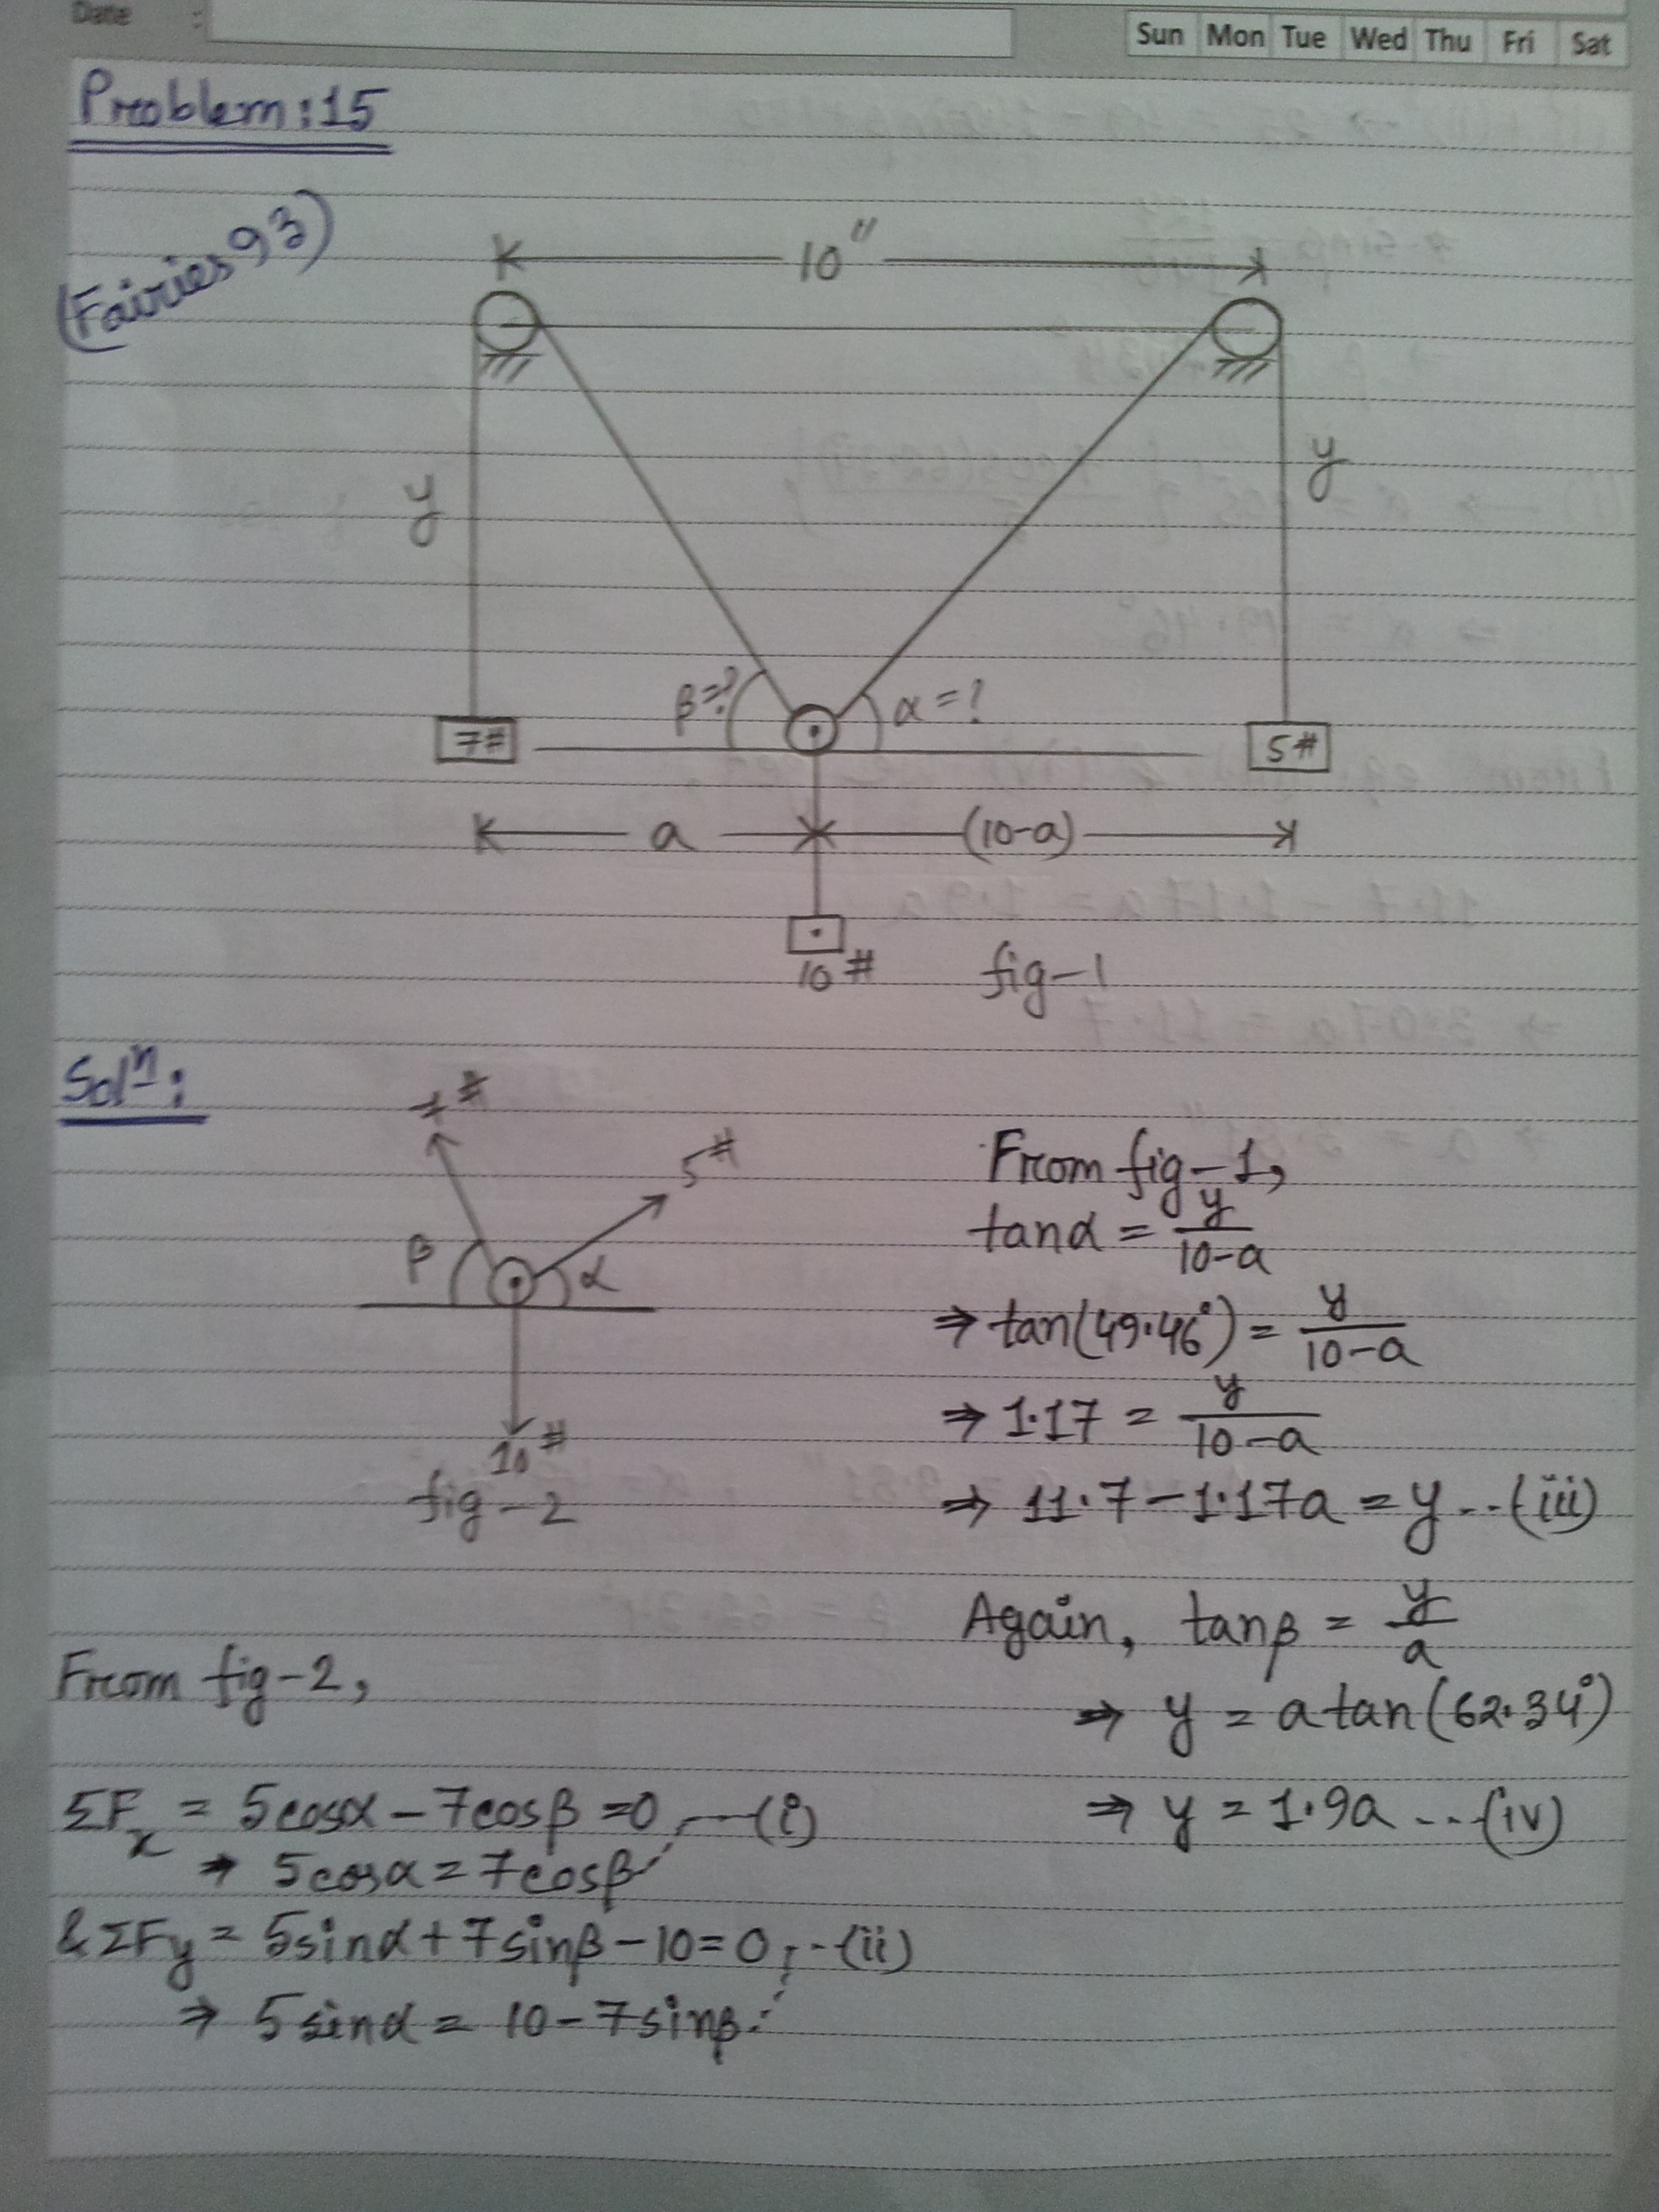 Date :
Sun Mon Tue Wed Thu Fri Sat
Problem:15
(Fairies 93)
10"
y
y
β=?
α=?
7#
5#
a
(10-a)
10#
fig-1
Solⁿ:
7#
5#
β
α
10#
fig-2
From fig-1,
tanα = y/(10-a)
⇒ tan(49.46°) = y/(10-a)
⇒ 1.17 = y/(10-a)
⇒ 11.7-1.17a = y ...(iii)
Again, tanβ = y/a
⇒ y = a tan(62.34°)
⇒ y = 1.9a ...(iv)
From fig-2,
ΣFx = 5cosα - 7cosβ = 0 ...(i)
⇒ 5cosα = 7cosβ
& ΣFy = 5sinα + 7sinβ - 10 = 0 ...(ii)
⇒ 5sinα = 10 - 7sinβ